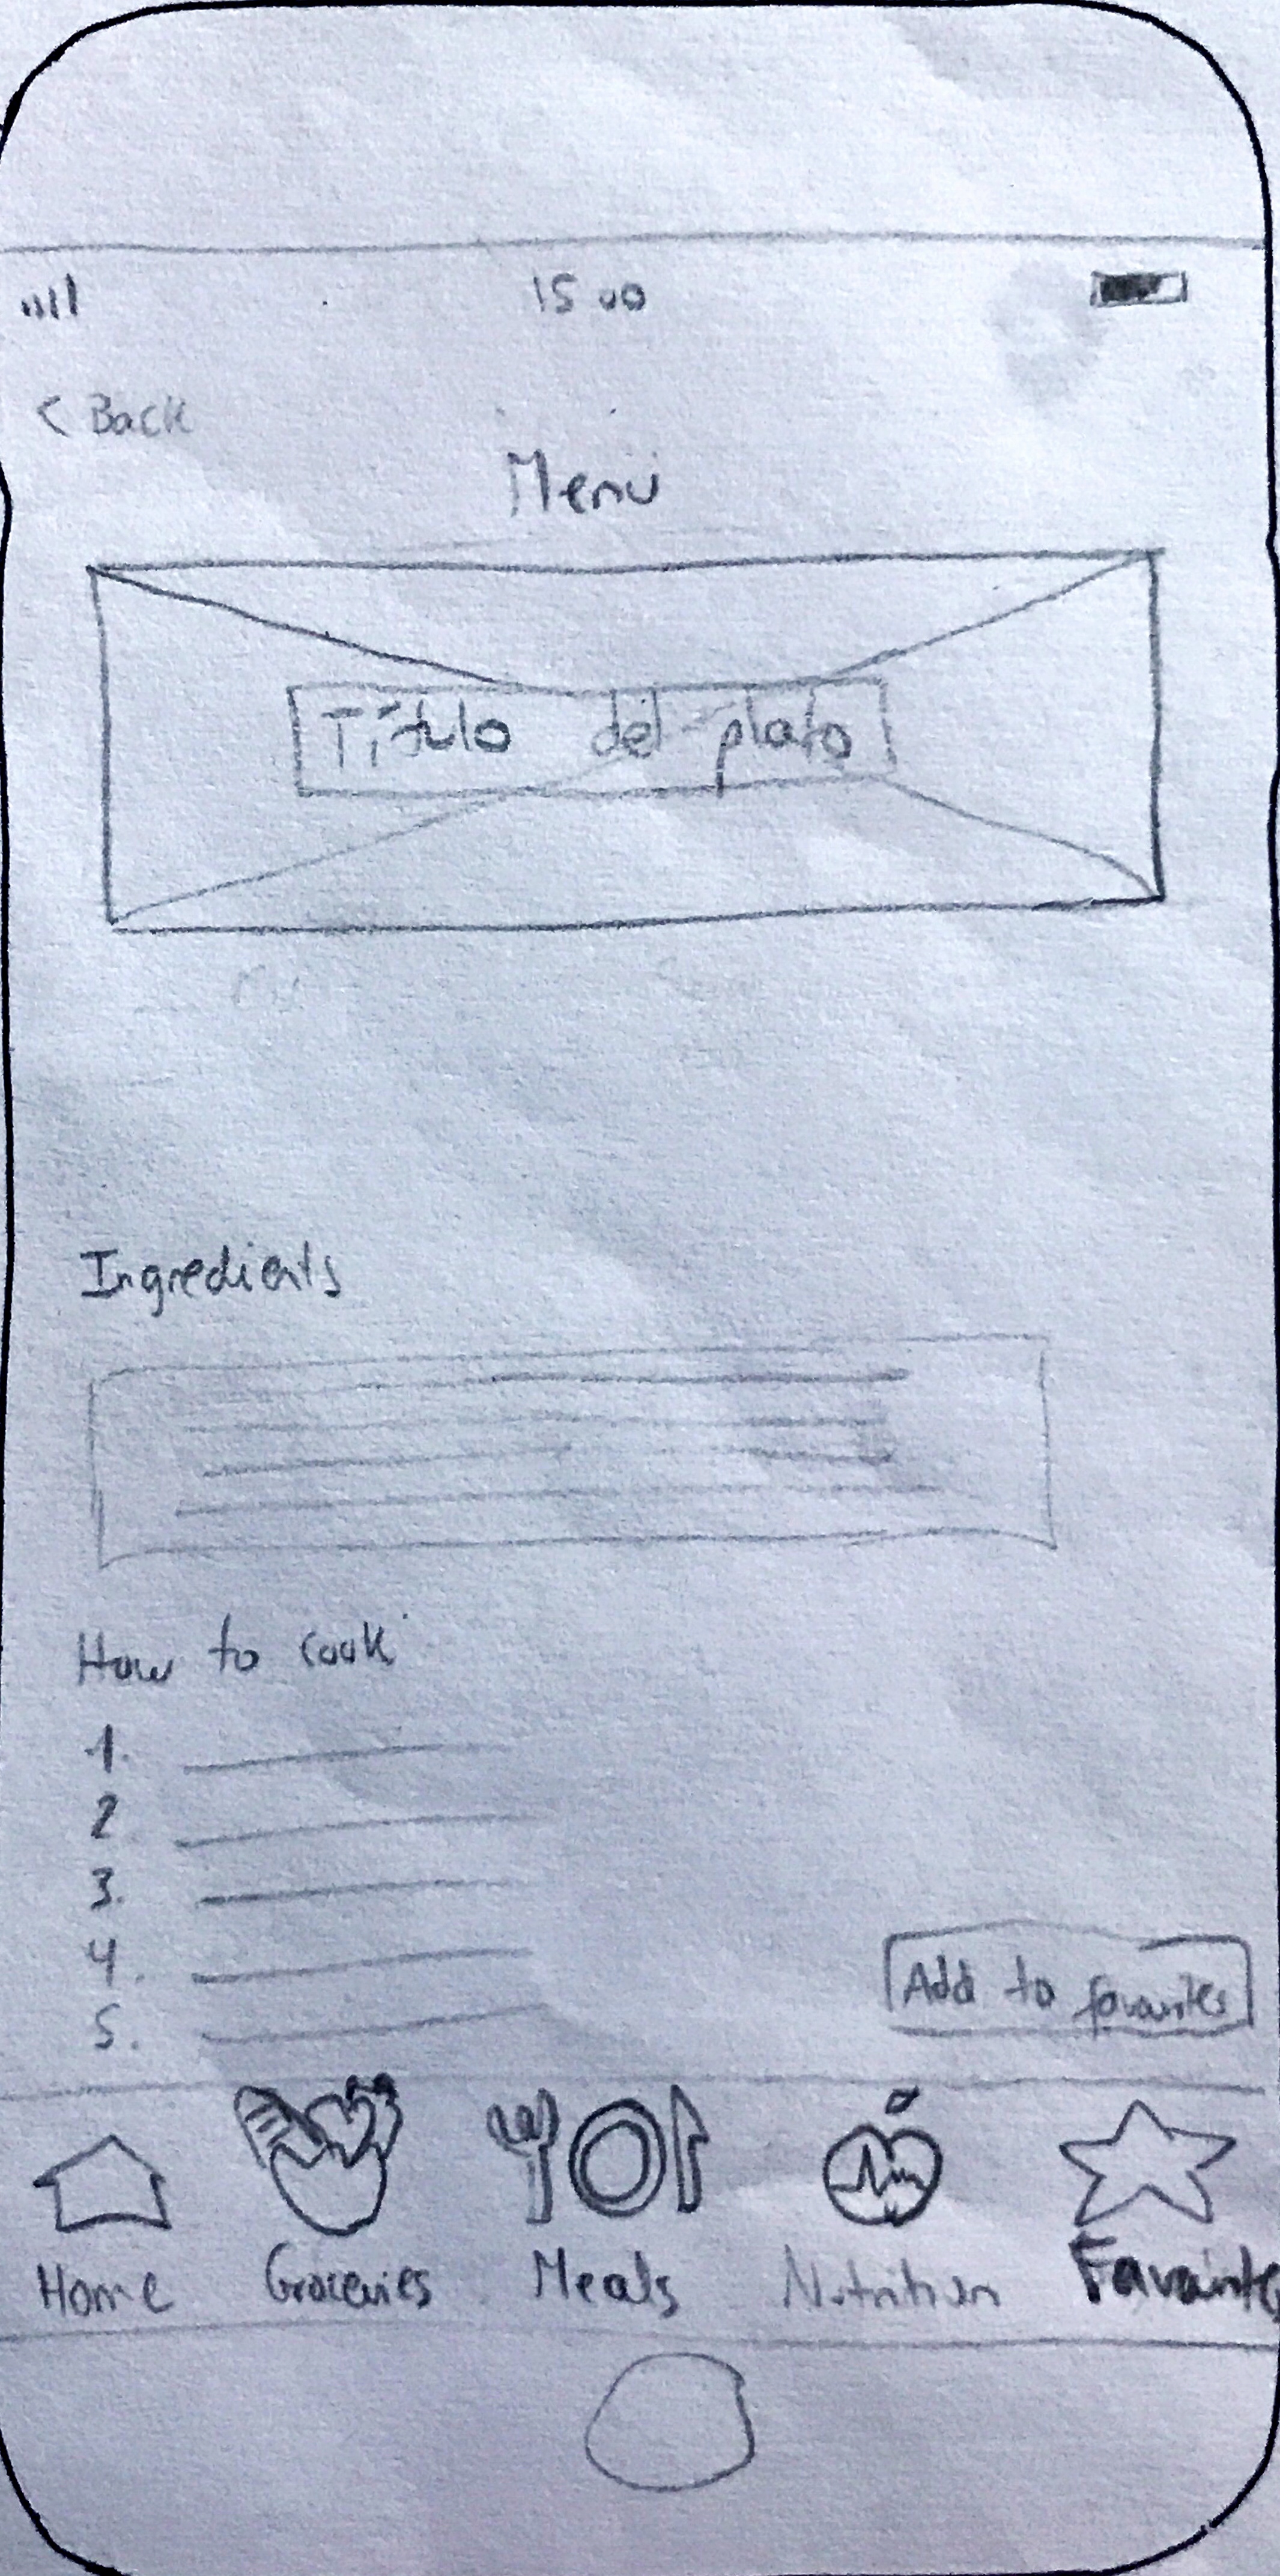 15 00
< Back
Menú
Título del plato
Ingredients
How to cook
1.
2
3.
4.
5.
Add to favourites
Home Groceries Meals Nutrition Favourite